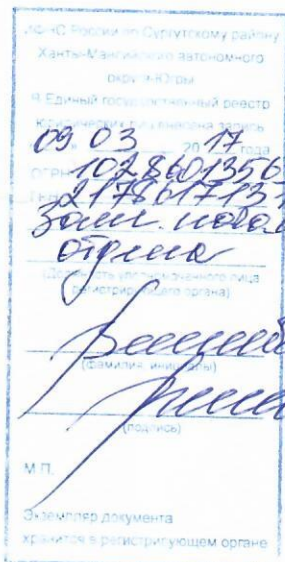 ИФНС России по Сургутскому району
Ханты-Мансийского автономного
округа-Югры
В Единый государственный реестр
юридических лиц внесена запись
09 03 2017 года
ОГРН 1028601356
ГРН 217861713
зам. начал
отдела
(Должность уполномоченного лица
регистрирующего органа)
(фамилия, инициалы)
(подпись)
М.П.
Экземпляр документа
хранится в регистрирующем органе